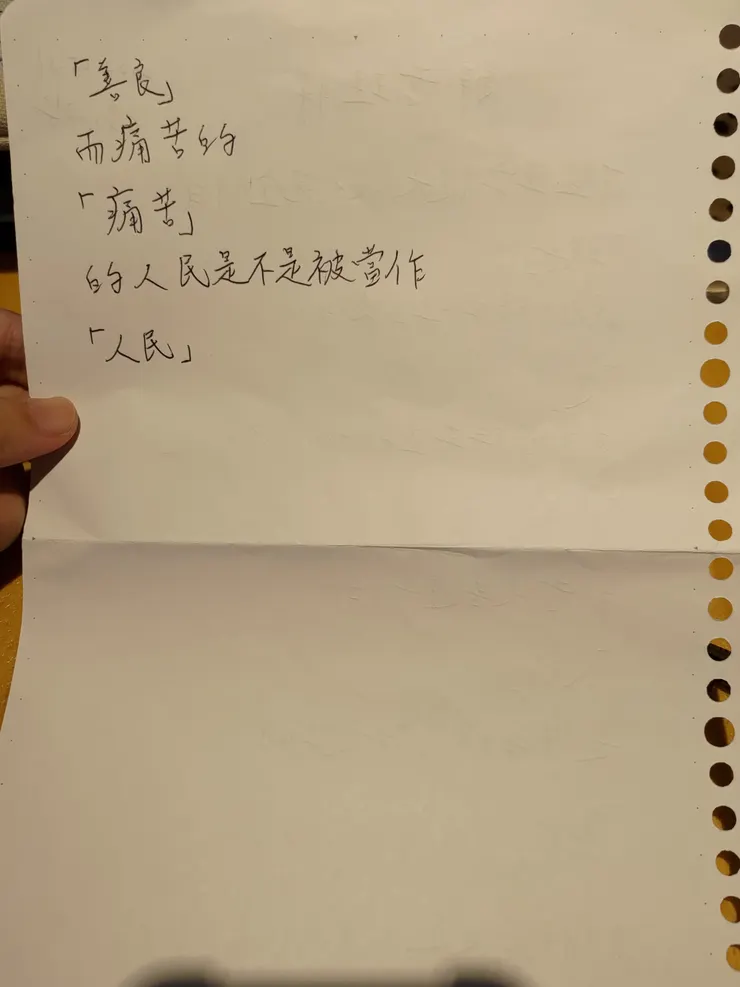 「善良」
而痛苦的
「痛苦」
的人民是不是被當作
「人民」